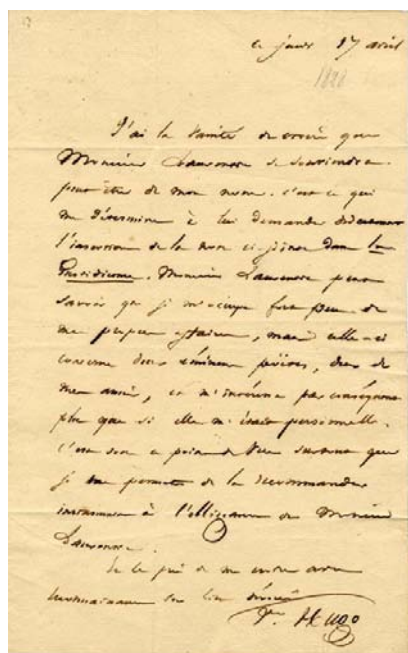 ce jeudi 17 avril
J'ai la vanité de croire que
Monsieur se souviendra
peut être de mon nom. c'est ce qui
me détermine à lui demander
l'insertion de la note ci-jointe dans la
Quotidienne. Monsieur peut
savoir que je m'occupe fort peu de
mes propres affaires, mais celle-ci
concerne deux poètes, deux de
mes amis, et m'intéresse par conséquent
plus que si elle m'était personnelle.
c'est sous ce point de vue surtout que
je me permets de la recommander
à l'obligeance de Monsieur
Je le prie de me croire son
V. Hugo